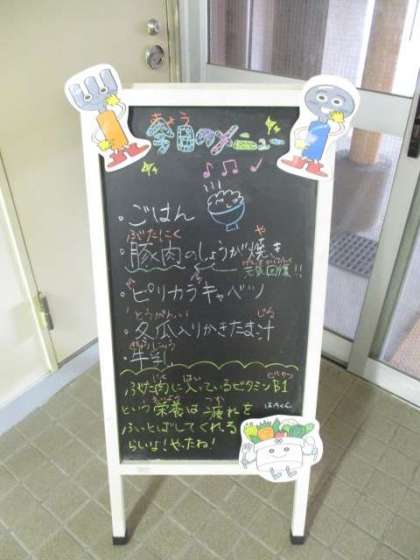 きょう
今日のメニュー
・ごはん
ぶたにく や
・豚肉のしょうが焼き
元気回復!!
・ピリカラキャベツ
とうがんい じる
・冬瓜入りかきたま汁
ぎゅうにゅう
・牛乳
にく はい ビタミン
ぶた肉に入っているビタミンB1
という栄養は疲れを
ふっとばしてくれる
らしいよ!やったね!